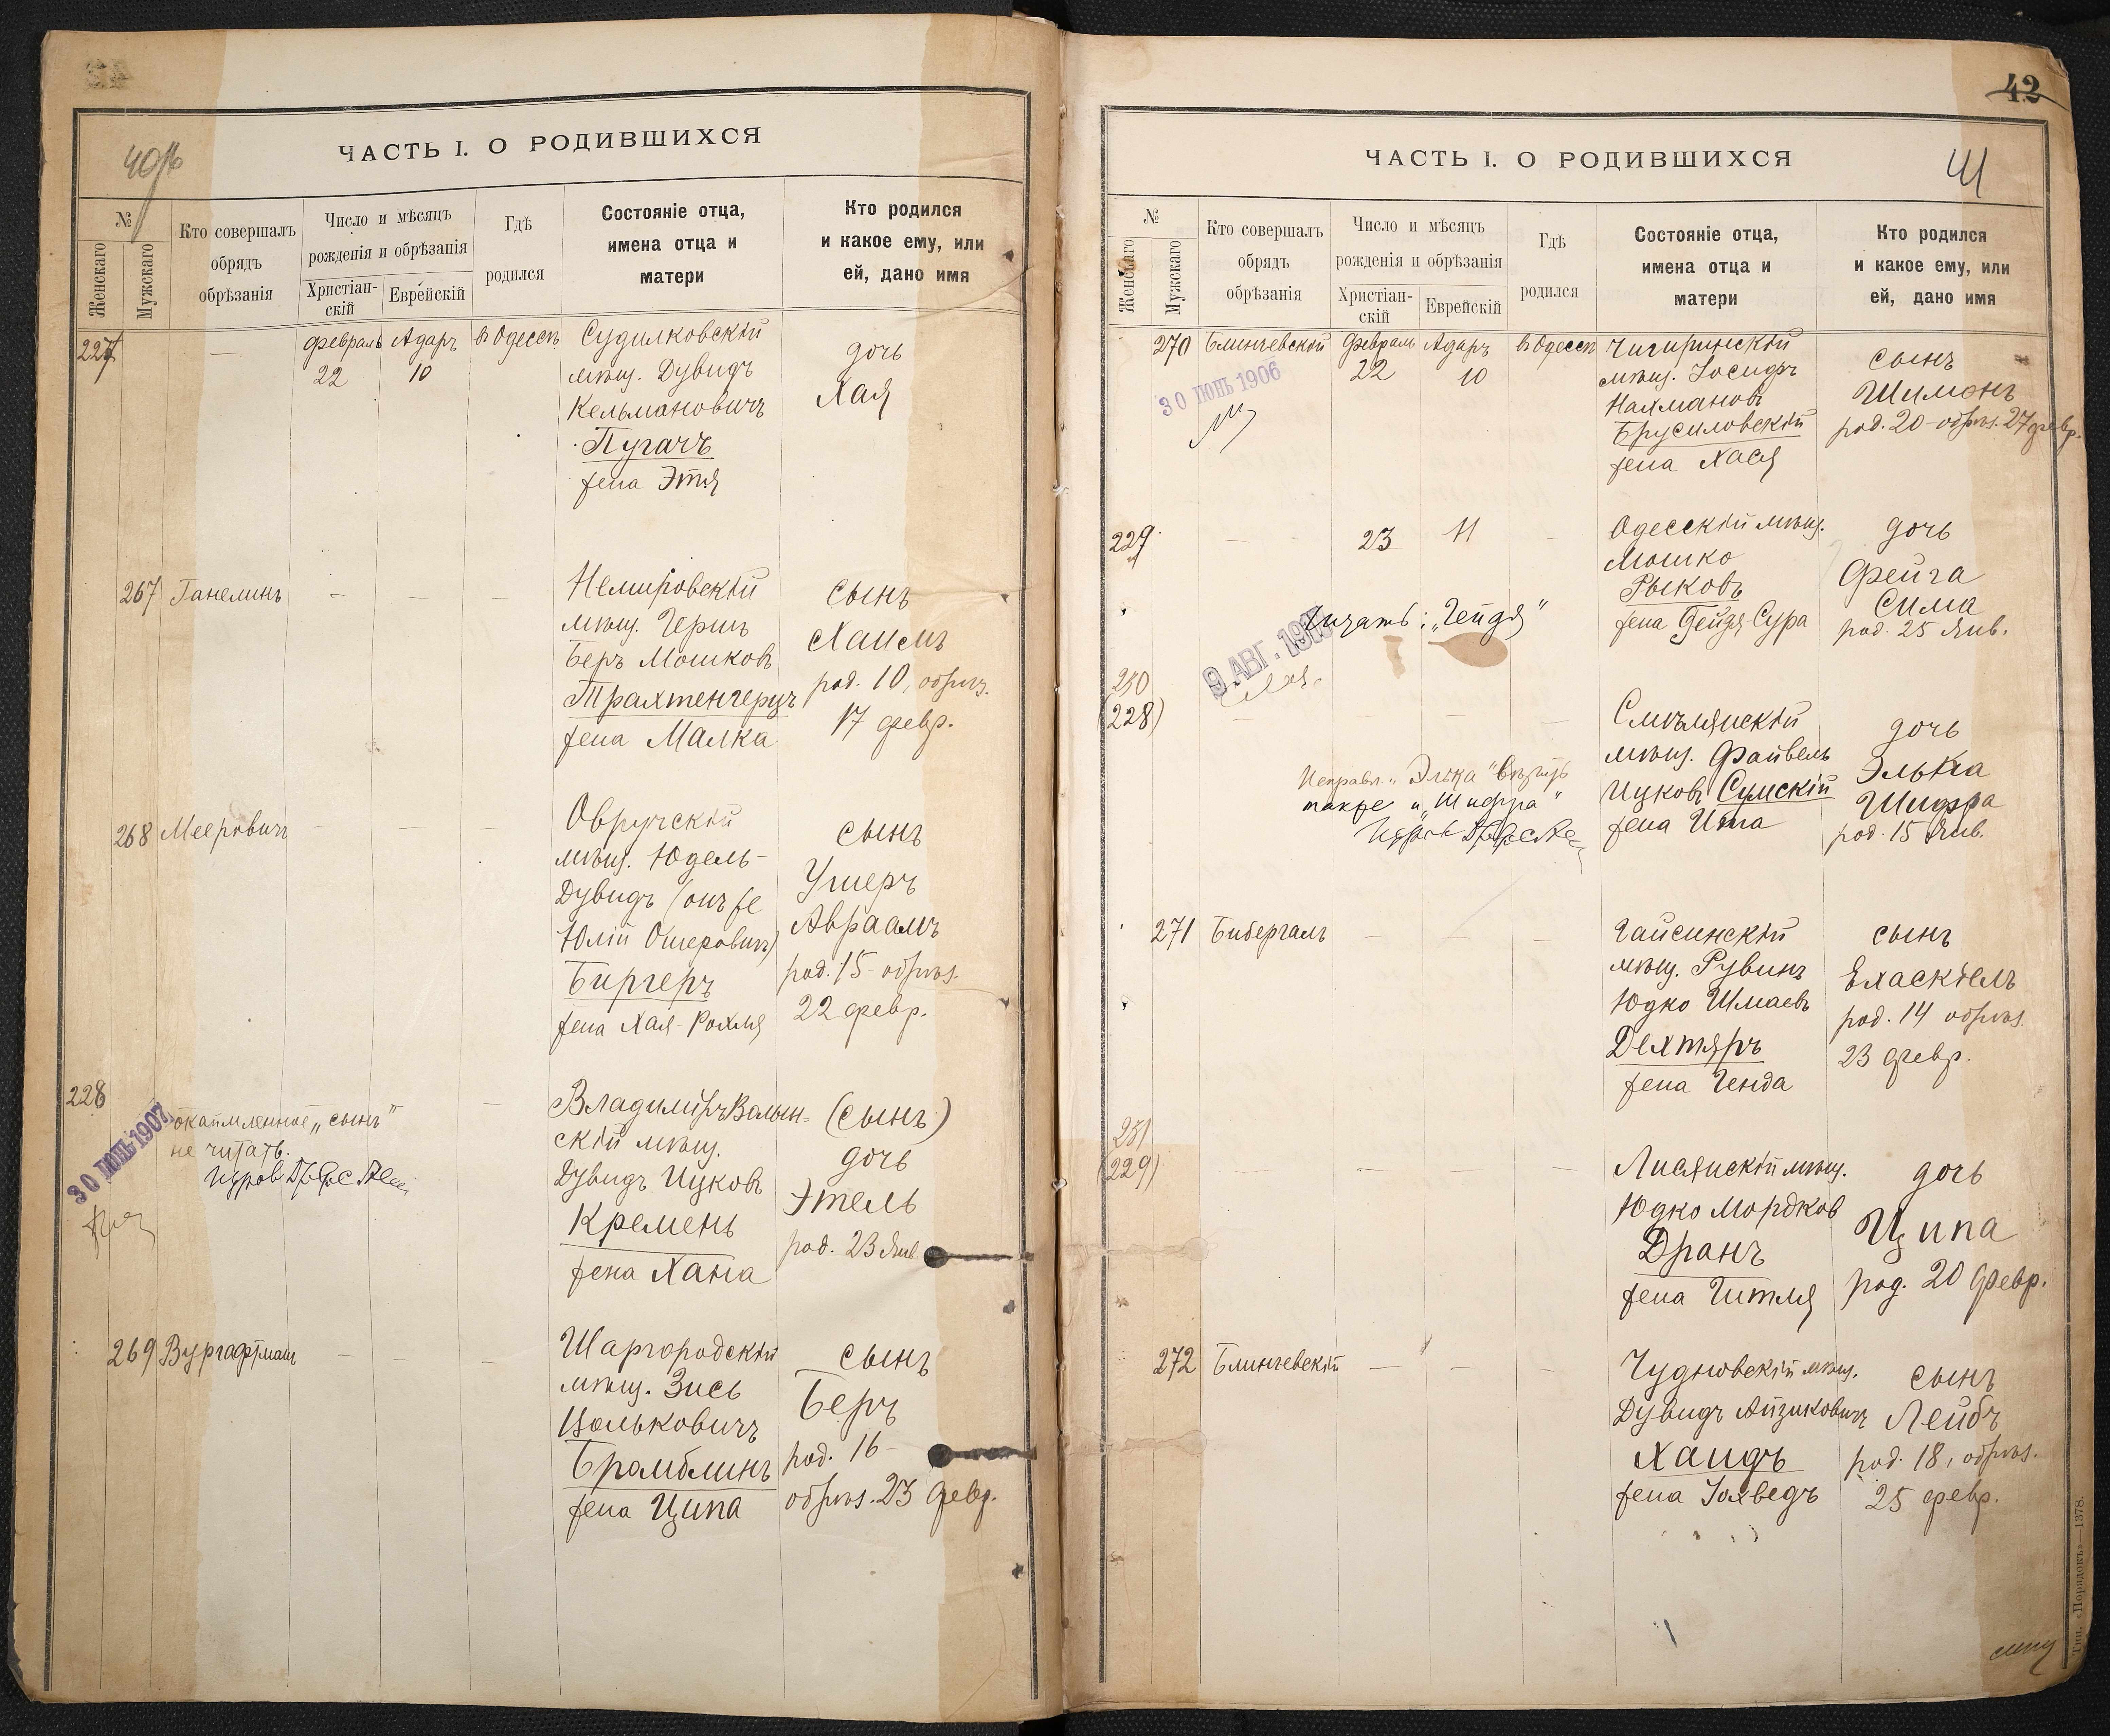 ЧАСТЬ I. О РОДИВШИХСЯ
№
Женскаго
Мужскаго
Кто совершалъ
обрядъ
обрѣзанія
Число и мѣсяцъ
рожденія и обрѣзанія
Христіан-
скій
Еврейскій
Гдѣ
родился
Состояніе отца,
имена отца и
матери
Кто родился
и какое ему, или
ей, дано имя
227
—
Февраль
22
Адаръ
10
въ Одессѣ
Судилковскій
мѣщ. Дувидъ
Кельмановичъ
Пугачъ
жена Этя
дочь
Хая
267
Ганелинъ
— — —
Немировскій
мѣщ. Гершъ
Беръ Мошковъ
Трахтенгерцъ
жена Малка
сынъ
Хаимъ
род. 10, обрѣз.
17 февр.
268
Мееровичъ
— — —
Овручскій
мѣщ. Юдель-
Дувидъ (онъ же
Юлій Ошеровичъ)
Биргеръ
жена Хая-Рохля
сынъ
Ушеръ
Авраамъ
род. 15 - обрѣз.
22 февр.
228
30 ІЮНЬ 1907
окаймленное „сынъ"
не читать.
Владиміръ Волын-
скій мѣщ.
Дувидъ Ицковъ
Кремень
жена Хана
(сынъ)
дочь
Этель
род. 23 Янв.
269
Вургафтманъ
— — —
Шаргородскій
мѣщ. Зись
Вольковичъ
Брамблинъ
жена Ципа
сынъ
Беръ
род. 16 -
обрѣз. 23 февр.
42
ЧАСТЬ I. О РОДИВШИХСЯ
41
№
Женскаго
Мужскаго
Кто совершалъ
обрядъ
обрѣзанія
Число и мѣсяцъ
рожденія и обрѣзанія
Христіан-
скій
Еврейскій
Гдѣ
родился
Состояніе отца,
имена отца и
матери
Кто родился
и какое ему, или
ей, дано имя
270
Блинчевскій
30 ІЮНЬ 1906
Февраль
22
Адаръ
10
въ Одессѣ
Чигиринскій
мѣщ. Іосифъ
Нахмановъ
Брусиловскій
жена Хася
сынъ
Шимонъ
род. 20 - обрѣз. 27 февр.
229
—
23
11
—
Одесскій мѣщ.
Мошко
Рыковъ
жена Гейдя Сура
дочь
Фейга
Сима
род. 25 Янв.
Читать: „Гейдя"
9 АВГ.
230
(228)
— — —
Исправл. „Элька"
также и „Шифра"
Смѣлянскій
мѣщ. Файвель
Ицковъ Сумскій
жена Ита
дочь
Элька
Шифра
род. 15 Янв.
271
Бибергалъ
— — —
Гайсинскій
мѣщ. Рувинъ
Юдко Шмаевъ
Дехтяръ
жена Генда
сынъ
Ехаскіель
род. 14 обрѣз.
23 февр.
231
(229)
— — — —
Лисянскій мѣщ.
Юдко Мордков
Дранъ
жена Гитля
дочь
Ципа
род. 20 Февр.
272
Блинчевскій
— — —
Чудновскій мѣщ.
Дувидъ Айзиковичъ
Хаидъ
жена Іохведъ
сынъ
Лейбъ
род. 18, обрѣз.
25 февр.
Тип. «Порядокъ»—1378.